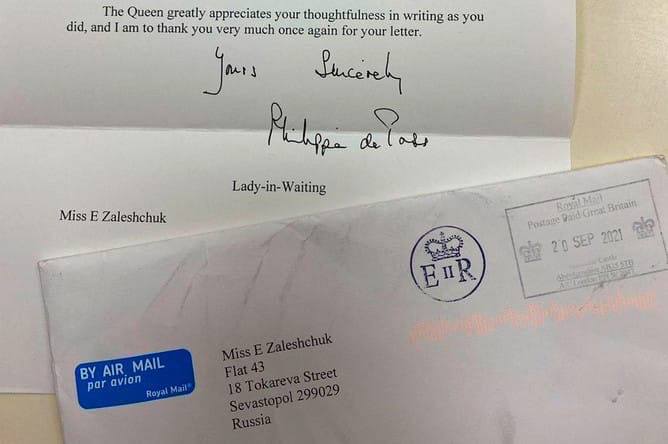 The Queen greatly appreciates your thoughtfulness in writing as you
did, and I am to thank you very much once again for your letter.
Yours Sincerely
Philippa de Pass
Lady-in-Waiting
Miss E Zaleshchuk
E II R
Royal Mail
Postage Paid Great Britain
20 SEP 2021
Castle
Aberdeenshire AB35 5TB
BY AIR MAIL
par avion
Royal Mail®
Miss E Zaleshchuk
Flat 43
18 Tokareva Street
Sevastopol 299029
Russia